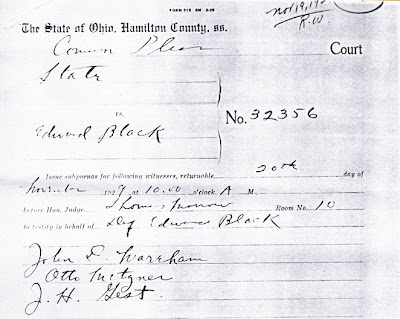 FORM 718 5M 8-29
Nov 19, 19
R.W
The State of Ohio, Hamilton County, ss.
Common Pleas Court
State
vs.
Edward Black
No. 32356
Issue subpoenas for following witnesses, returnable 20th day of
November 1929 at 10.00 o'clock A M.
before Hon. Judge Thomas Morrow Room No. 10
to testify in behalf of Def Edward Black
John D. Wareham
Otto
J. H. Gest.